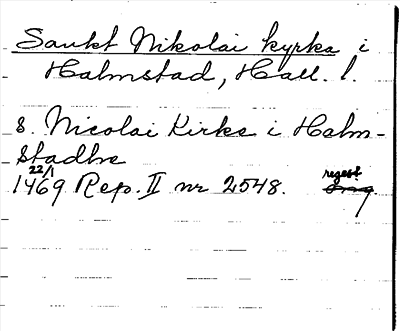 Sankt Nikolai kyrka i
Halmstad, Hall. l.
S. Nicolai Kirke i Halm-
stadhe
22/1
1469 Rep. II nr 2548. regest